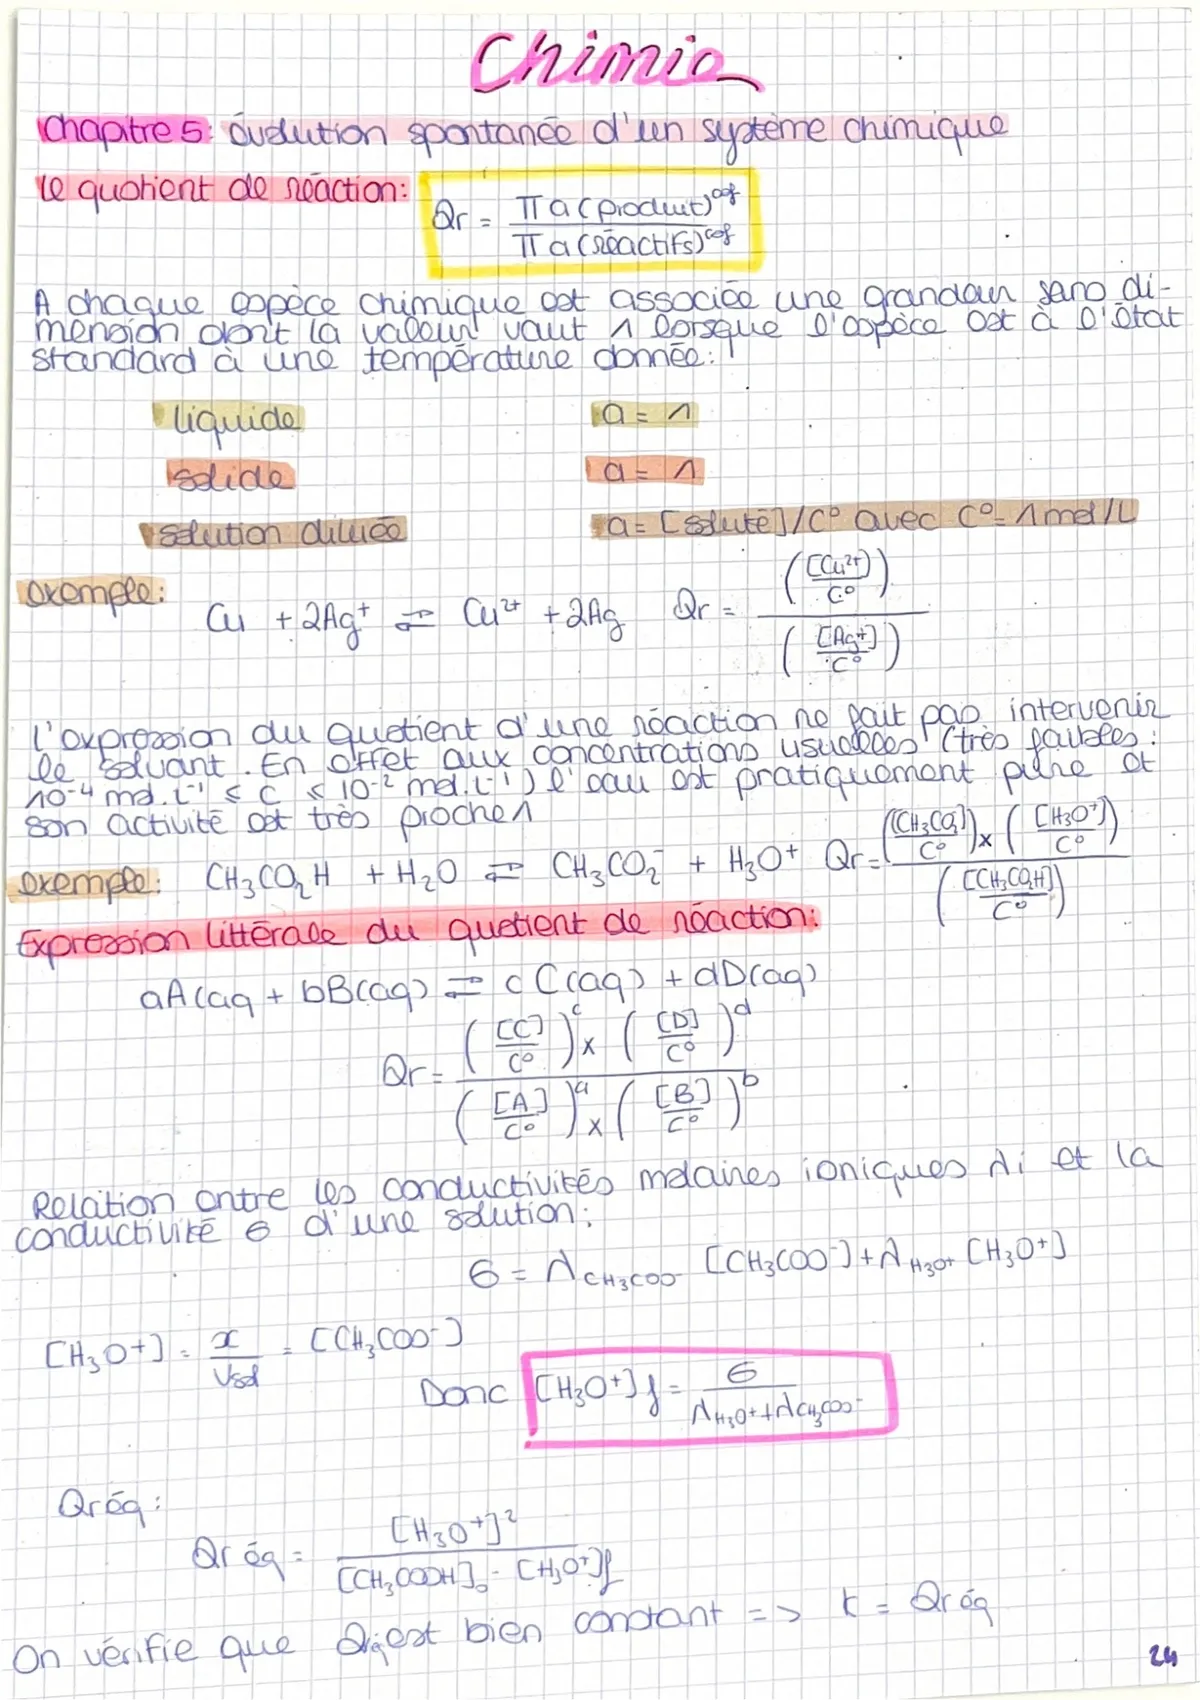 Chimie
Chapitre 5: évolution spontanée d'un système chimique
le quotient de réaction: Qr = Π a (produit)^cof / Π a (réactifs)^cof
A chaque espèce chimique est associée une grandeur sans di-
mension dont la valeur vaut 1 lorsque l'espèce est à l'état
standard à une température donnée:
liquide a = 1
solide a = 1
solution diluée a = [soluté]/C° avec C° = 1 mol/L
exemple: Cu + 2Ag⁺ ⇌ Cu²⁺ + 2Ag Qr = ([Cu²⁺]/C°) / ([Ag⁺]/C°)
L'expression du quotient d'une réaction ne fait pas intervenir
le solvant. En effet aux concentrations usuelles (très faibles :
10⁻⁴ mol.L⁻¹ ≤ C ≤ 10⁻² mol.L⁻¹) l'eau est pratiquement pure et
son activité est très proche 1
exemple: CH₃CO₂H + H₂O ⇌ CH₃CO₂⁻ + H₃O⁺ Qr = ([CH₃CO₂⁻]/C°) x ([H₃O⁺]/C°) / ([CH₃CO₂H]/C°)
Expression littérale du quotient de réaction:
aA(aq + bB(aq) ⇌ cC(aq) + dD(aq)
Qr = ([C]/C°)^c x ([D]/C°)^d / ([A]/C°)^a x ([B]/C°)^b
Relation entre les conductivités molaires ioniques λi et la
conductivité σ d'une solution:
σ = λCH₃COO⁻ [CH₃COO⁻] + λH₃O⁺ [CH₃O⁺]
[CH₃O⁺] = x / Vsol = [CH₃COO⁻]
Donc [CH₃O⁺]f = σ / λH₃O⁺ + λCH₃COO⁻
Qréq:
Qr éq = [CH₃O⁺]² / [CH₃COOH]₀ - [CH₃O⁺]f
On vérifie que Qr est bien constant => K = Qréq
24